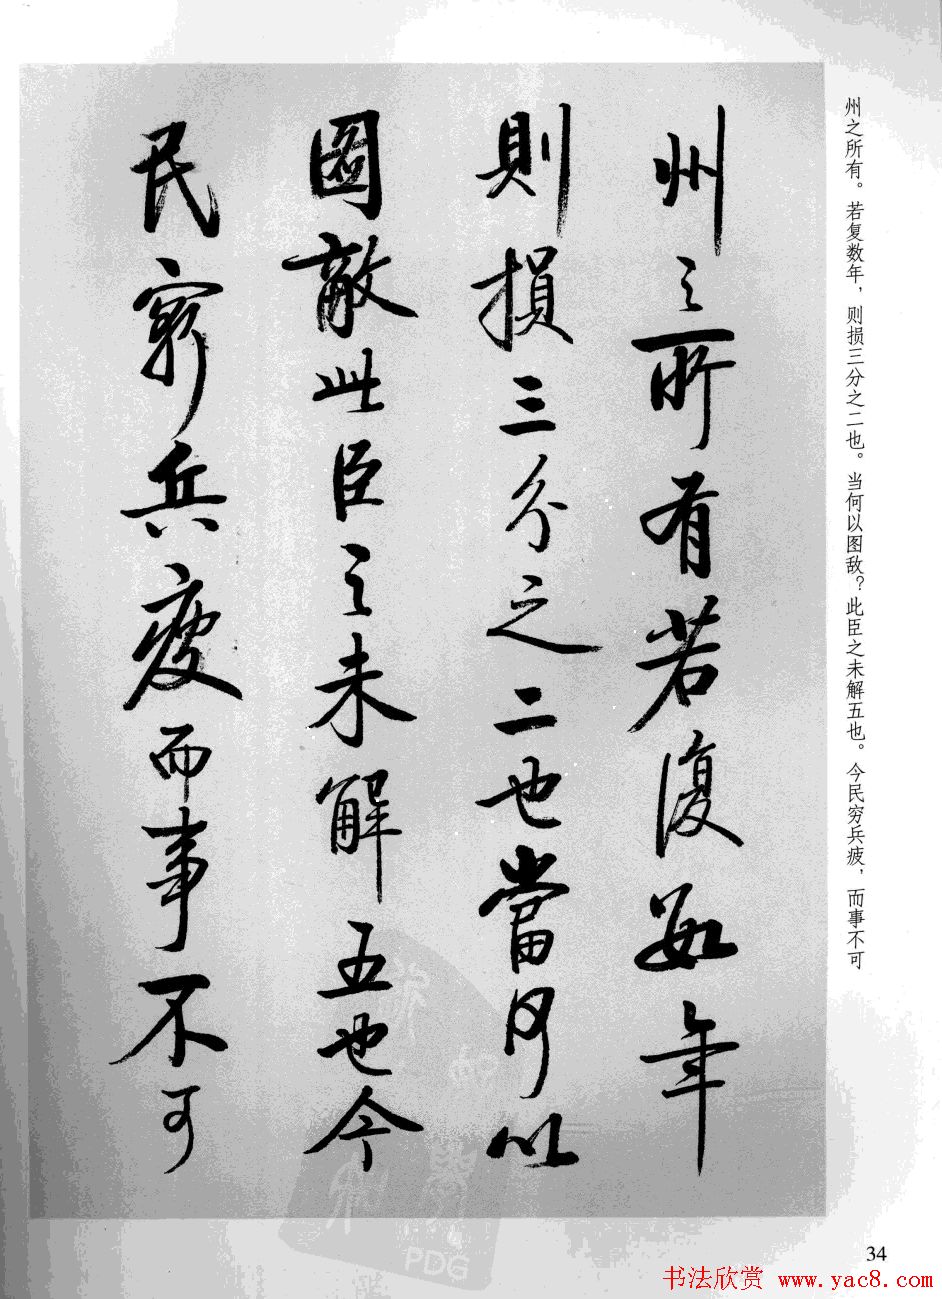 州之所有若復數年
則損三分之二也當何以
圖敵此臣之未解五也今
民窮兵疲而事不可
州之所有。若复数年，则损三分之二也。当何以图敌？此臣之未解五也。今民穷兵疲，而事不可
34
PDG
书法欣赏 www.yac8.com